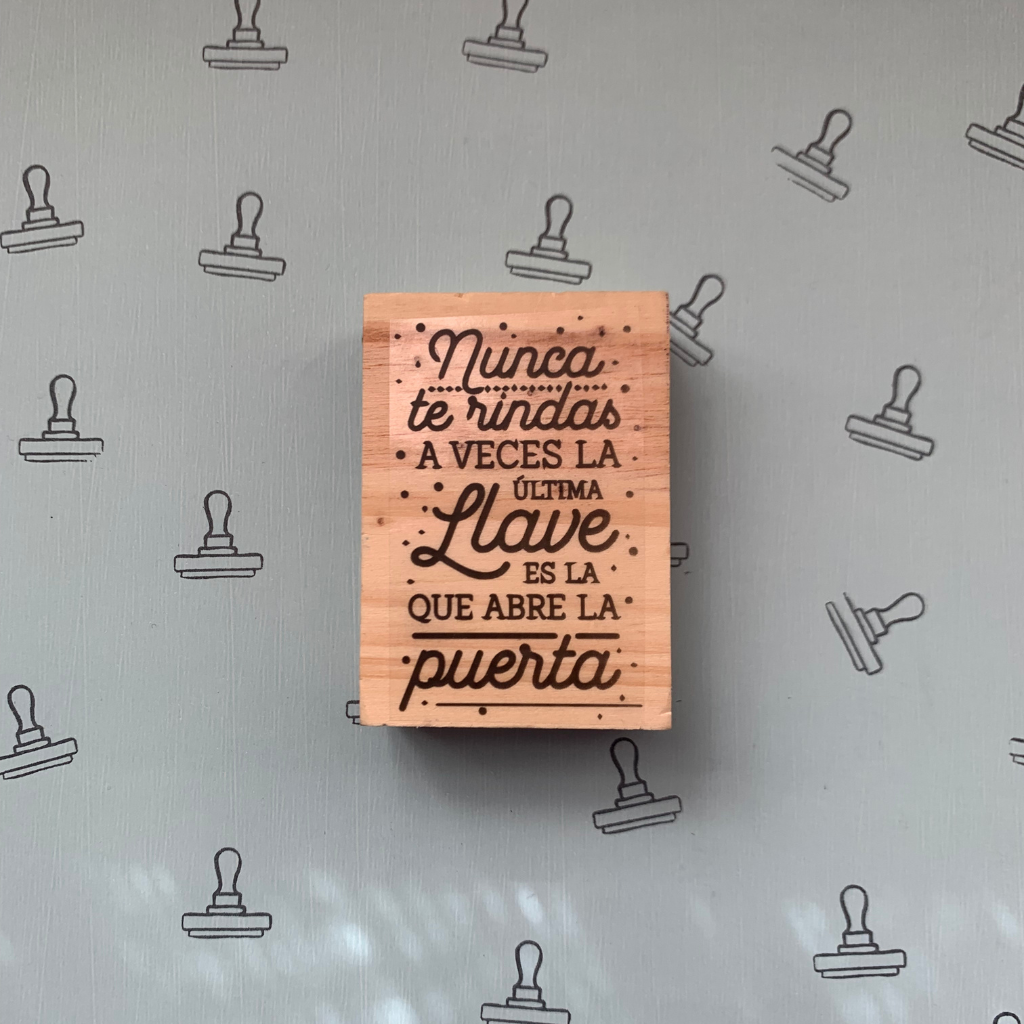 Nunca
te rindas
A VECES LA
ÚLTIMA
Llave
ES LA
QUE ABRE LA
puerta